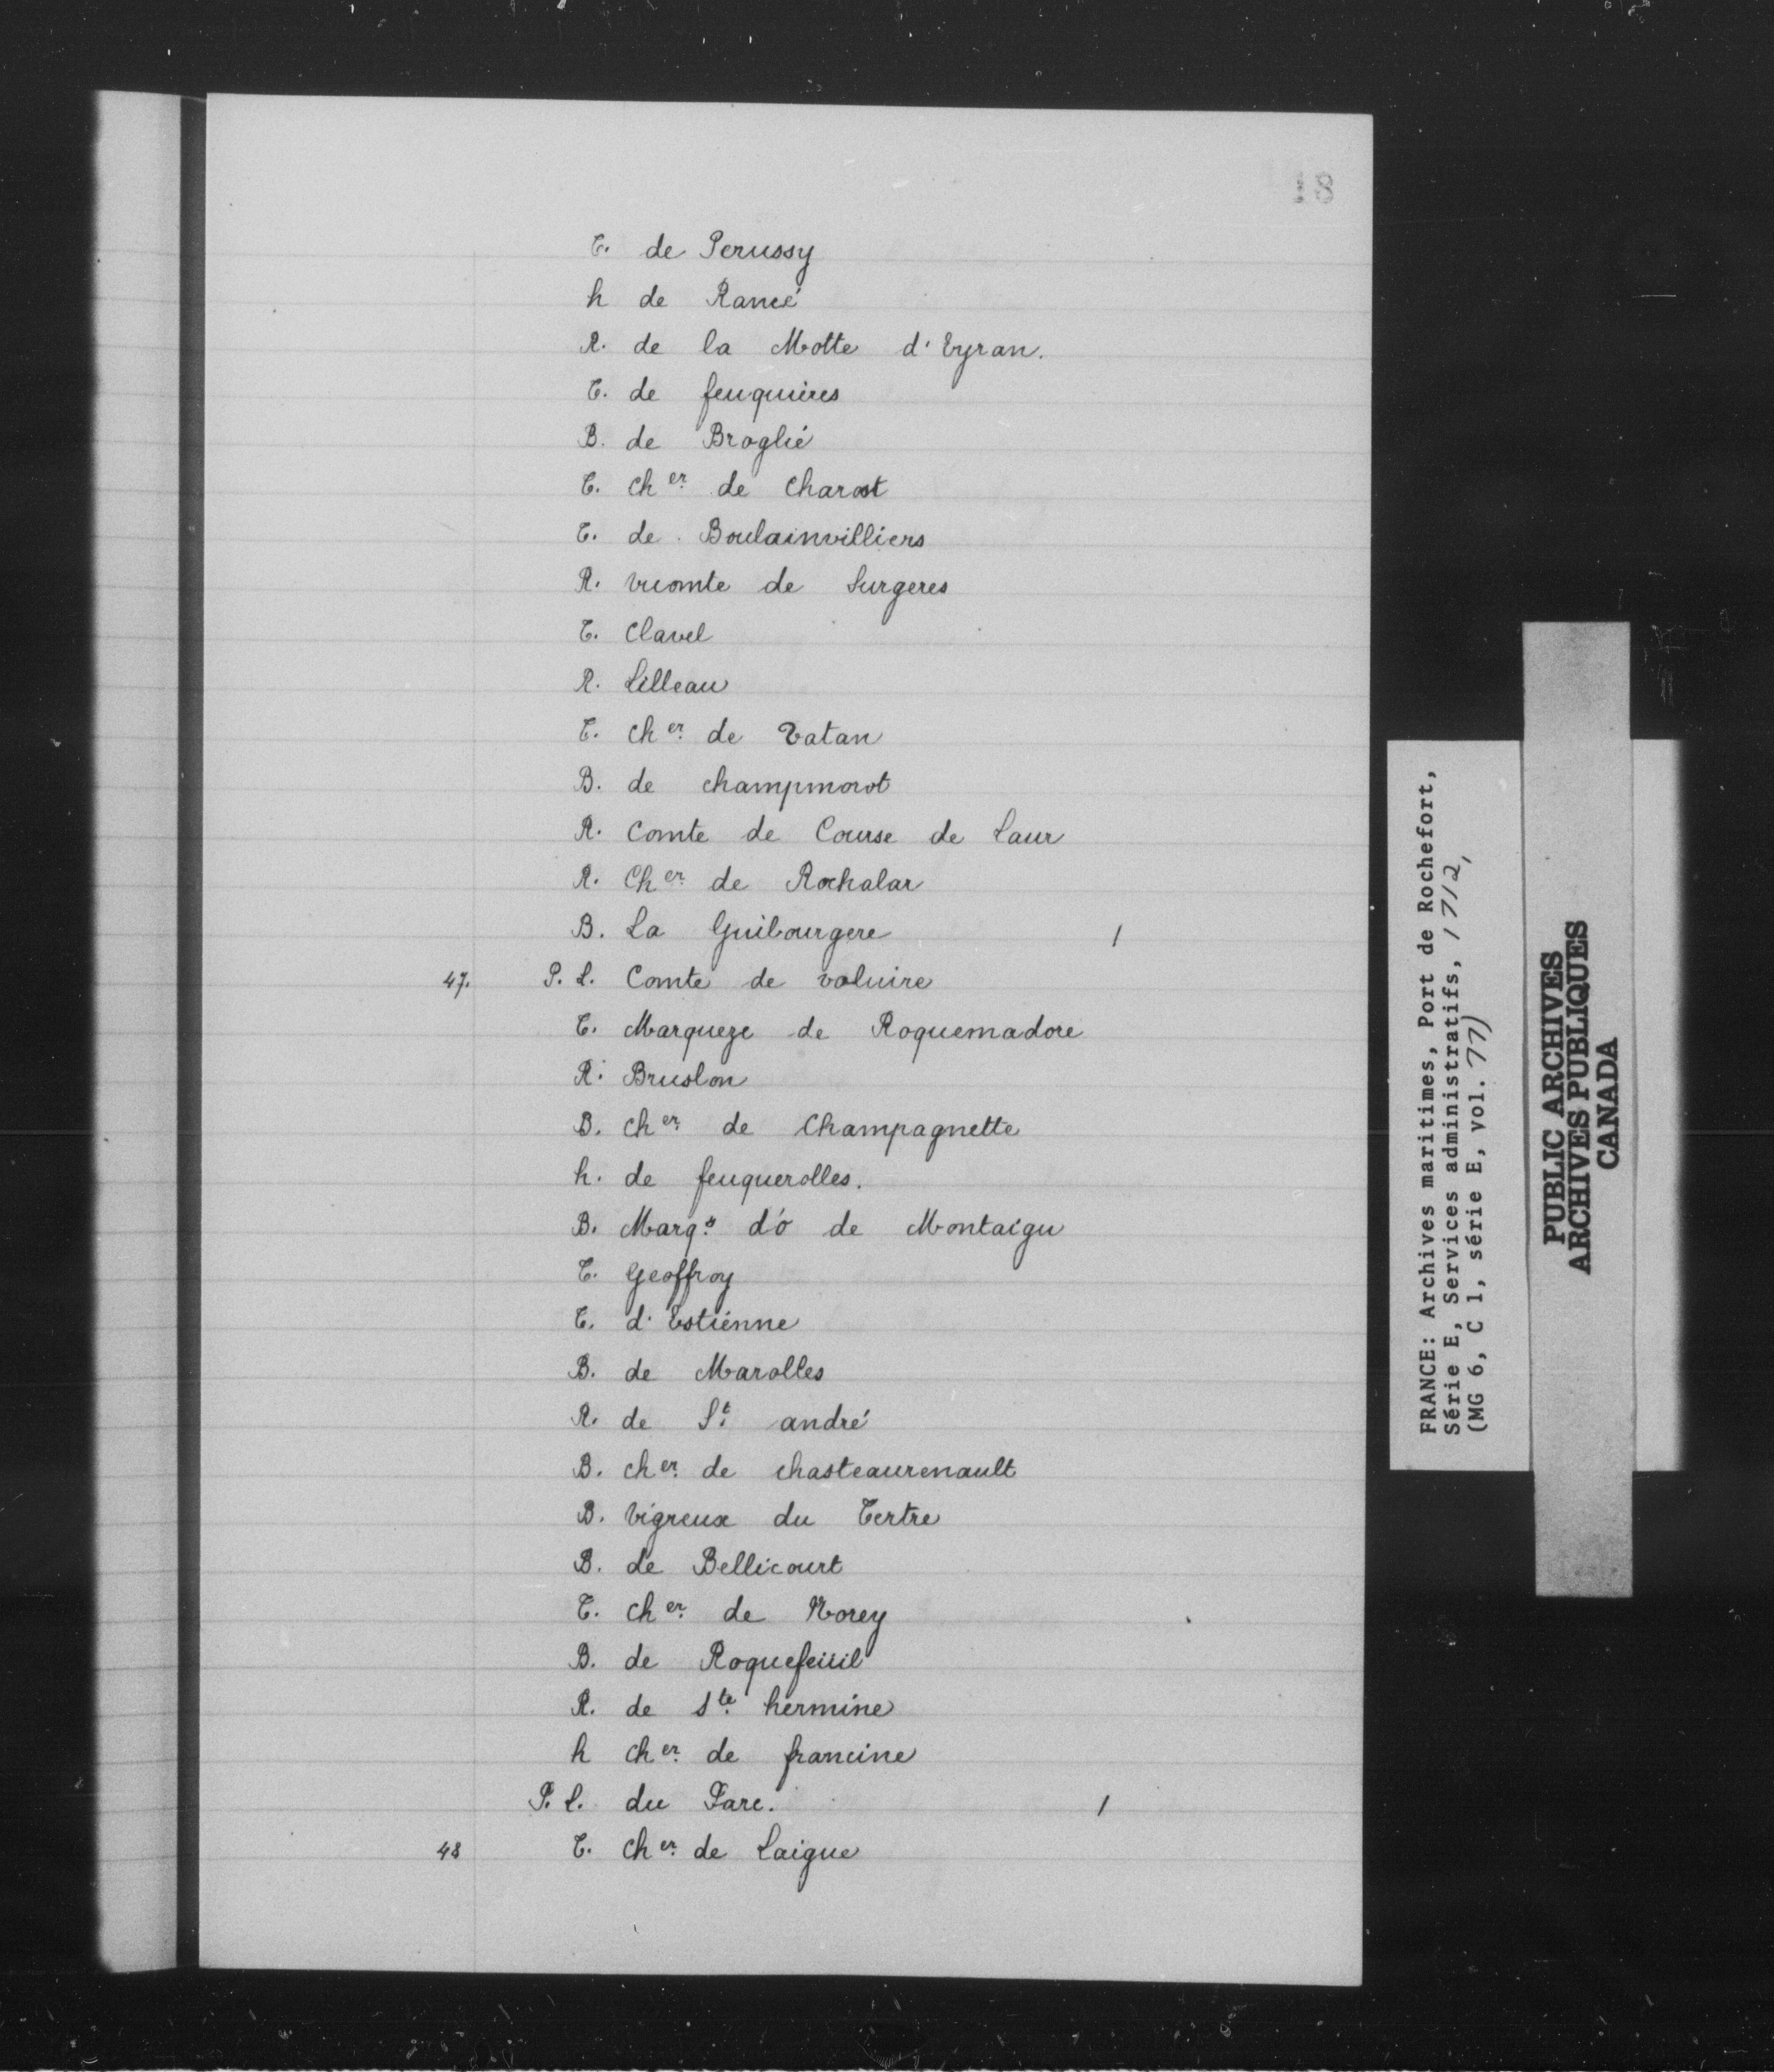 18
T. de Perussy
h de Rancé
R. de la Motte d'Eyran.
T. de feuquières
B. de Broglié
T. Cher. de Charost
T. de Boulainvilliers
R. vicomte de Surgeres
T. Clavel
R. Lilleau
T. Cher. de Vatan
B. de champmorot
R. Comte de Course de Laur
R. Cher. de Rochalar
B. La Guibourgere 1
47. P. L. Comte de voluire
T. Marqueze de Roquemadore
R. Bruslon
B. cher. de Champagnette
h. de feuquerolles.
B. Marqs. d'ó de Montaigu
T. Geoffroy
T. d'Estienne
B. de Marolles
R. de St. andré
B. cher. de chasteaurenault
B. Vigreux du Tertre
B. de Bellicourt
T. cher. de Norey
B. de Roquefeüil
R. de Ste. hermine
h cher. de francine
P. L. du Parc. 1
48 T. cher. de Laigue
FRANCE: Archives maritimes, Port de Rochefort,
Série E, Services administratifs, 1712,
(MG 6, C 1, série E, vol. 77)
PUBLIC ARCHIVES
ARCHIVES PUBLIQUES
CANADA